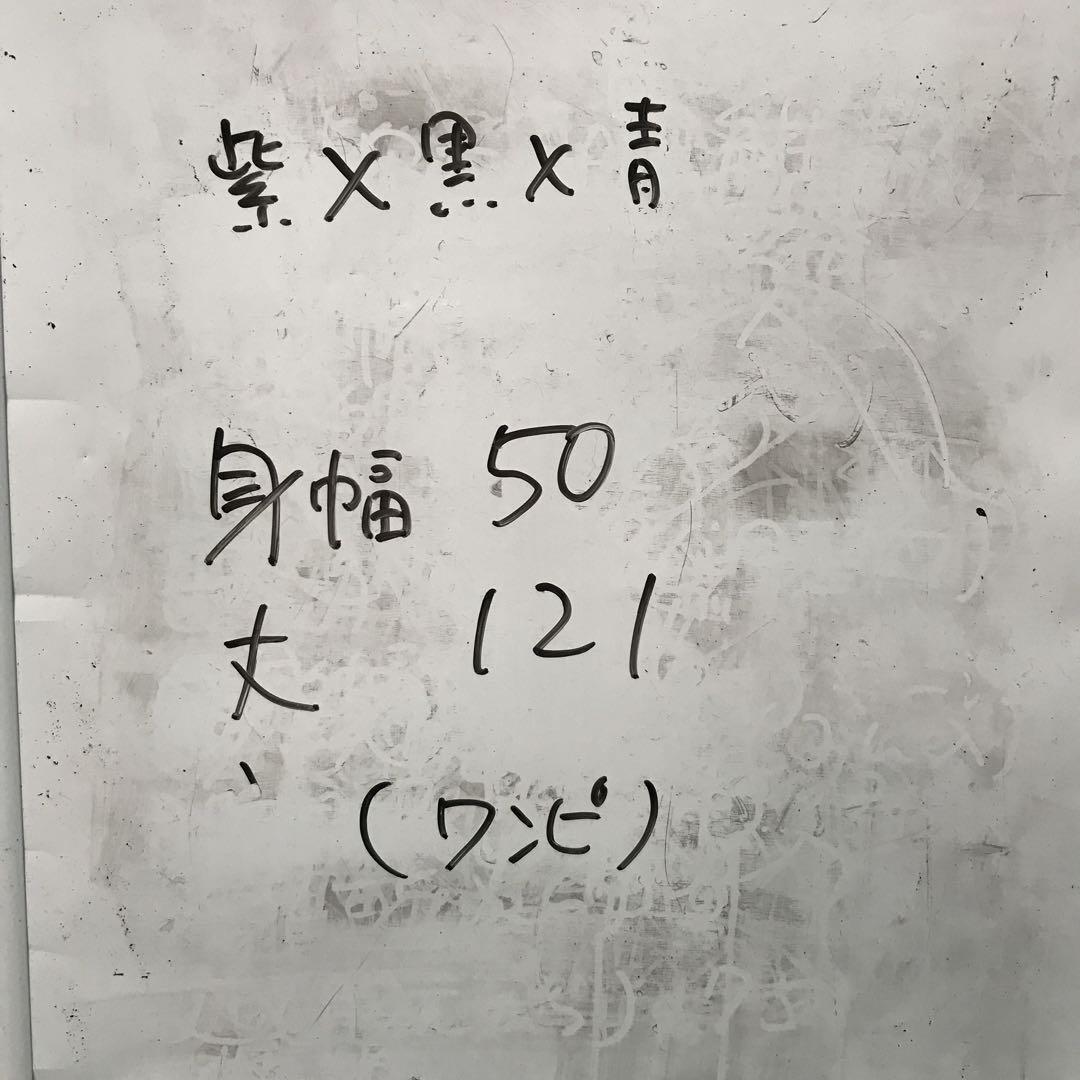 紫X黒X青
身幅 50
丈 121
、
(ワンピ)